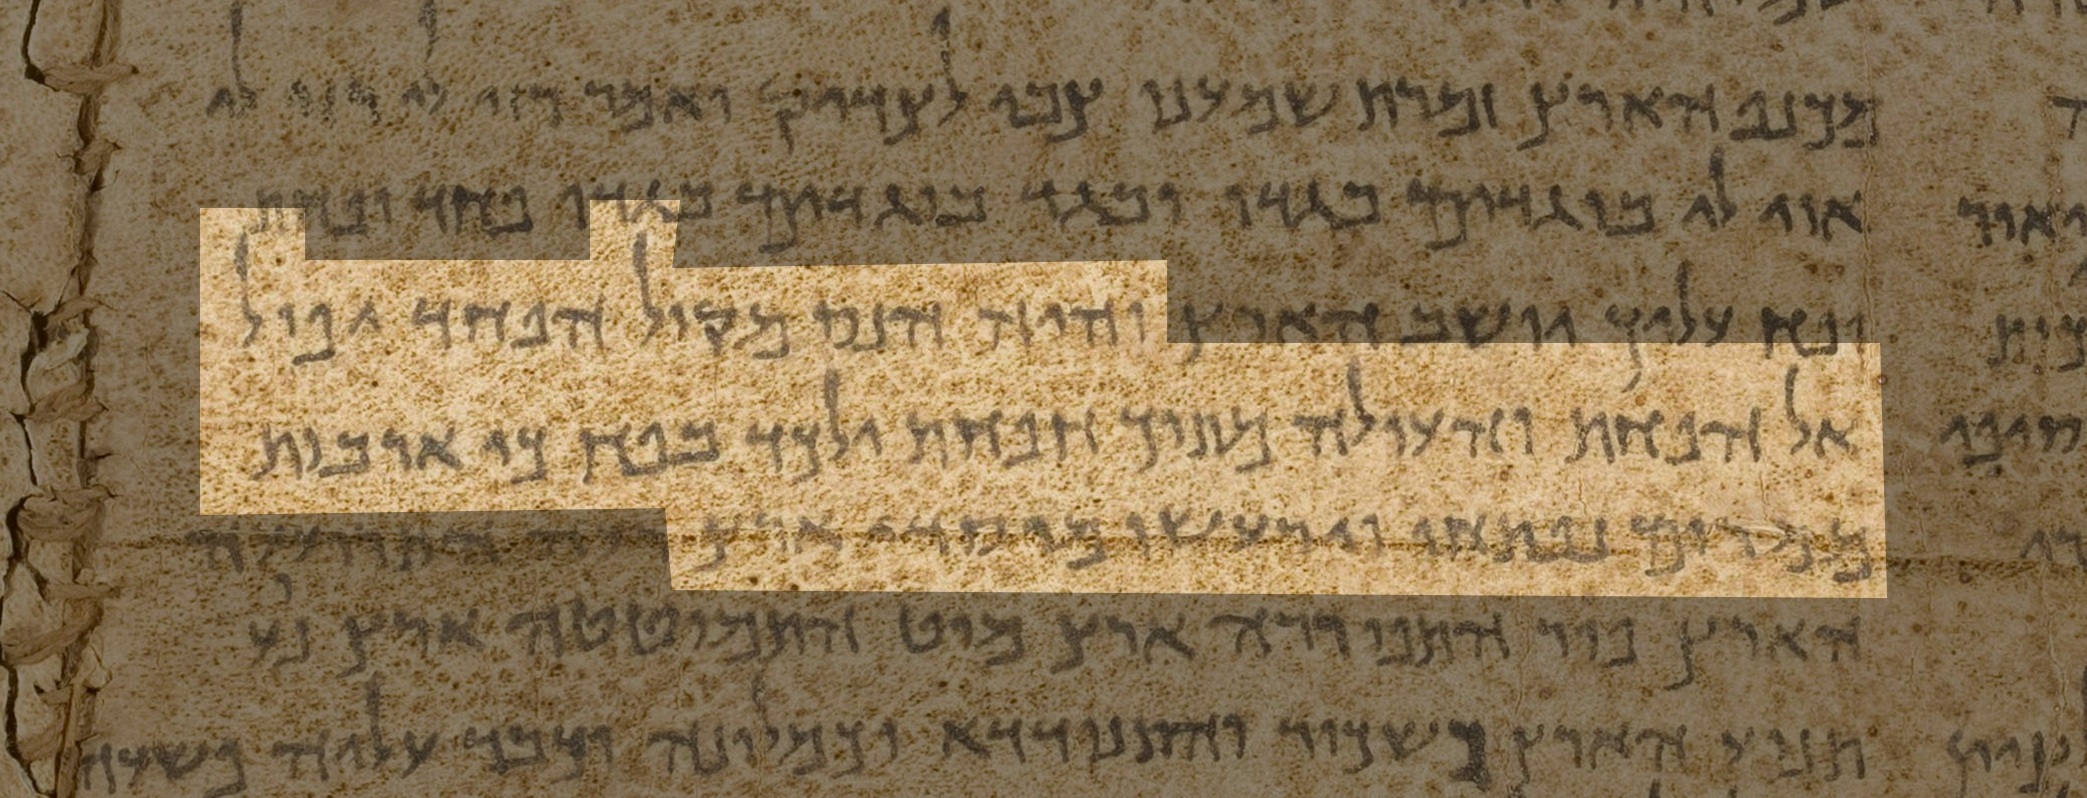 מכנף הארץ זמרת שמענו צבי לצדיק ואמר רזי לי רזי לי
אוי לי בוגדים בגדו ובגד בוגדים בגדו פחד ופחת
ופח עליך יושב הארץ והיה הנס מקול הפחד יפול
אל הפחת והעולה מתוך הפחת ילכד בפח כי ארבות
ממרומים נפתחו וירעשו מוסדי ארץ
הארץ פור התפוררה ארץ מוט התמוטטה ארץ נוע
תנוע הארץ כשכור והתנודדא וכמלונה וכבד עליה פשעה